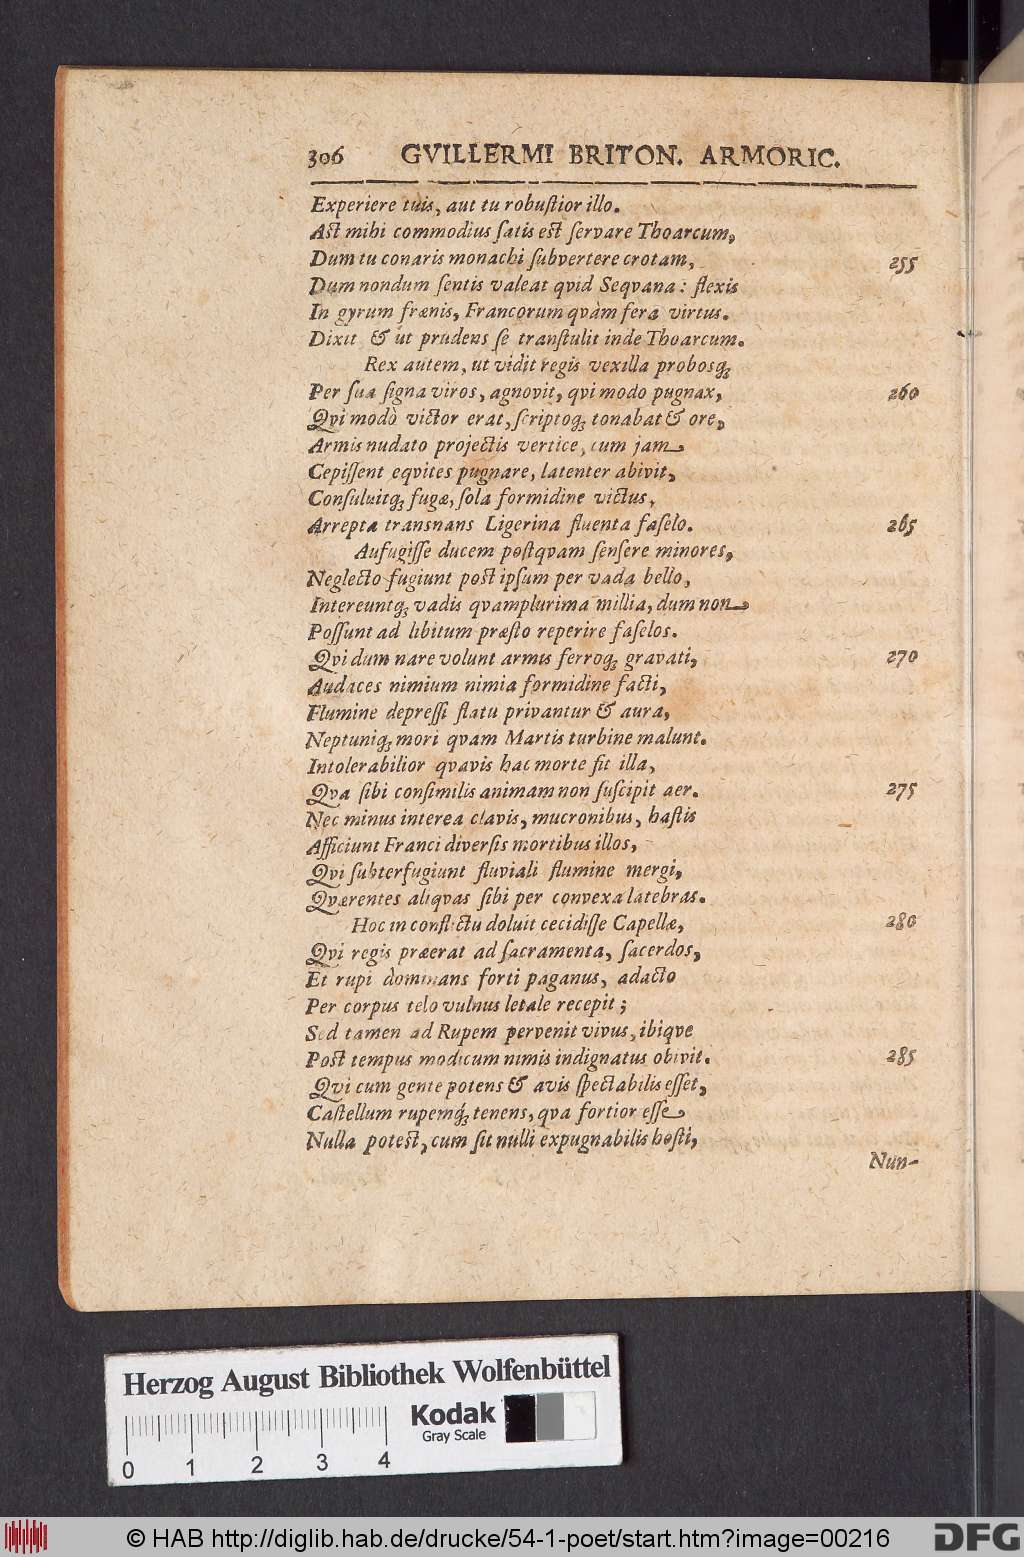 306 GVILLERMI BRITON. ARMORIC.
Experiere tuis, aut tu robuſtior illo.
Aſt mihi commodius ſatis eſt ſervare Thoarcum,
Dum tu conaris monachi ſubvertere crotam, 255
Dum nondum ſentis valeat qvid Seqvana: flexis
In gyrum frænis, Francorum qvàm fera virtus.
Dixit & ut prudens ſe tranſtulit inde Thoarcum.
Rex autem, ut vidit regis vexilla probosq;
Per ſua ſigna viros, agnovit, qvi modo pugnax, 260
Qvi modò victor erat, ſcriptoq; tonabat & ore,
Armis nudato projectis vertice, cum jam
Cepiſſent eqvites pugnare, latenter abivit,
Conſuluitq; fugæ, ſola formidine victus,
Arrepta transnans Ligerina fluenta faſelo. 265
Aufugiſſe ducem poſtqvam ſenſere minores,
Neglecto fugiunt poſt ipſum per vada bello,
Intereuntq; vadis qvamplurima millia, dum non
Poſſunt ad libitum præſto reperire faſelos.
Qvi dum nare volunt armis ferroq; gravati, 270
Audaces nimium nimia formidine facti,
Flumine depreſſi flatu privantur & aura,
Neptuniq; mori qvam Martis turbine malunt.
Intolerabilior qvavis hac morte ſit illa,
Qva ſibi conſimilis animam non ſuſcipit aer. 275
Nec minus interea clavis, mucronibus, haſtis
Afficiunt Franci diverſis mortibus illos,
Qvi ſubterfugiunt fluviali flumine mergi,
Qværentes aliqvas ſibi per convexa latebras.
Hoc in conflictu doluit cecidiſſe Capellæ, 280
Qvi regis præerat ad ſacramenta, ſacerdos,
Et rupi dominans forti paganus, adacto
Per corpus telo vulnus letale recepit;
Sed tamen ad Rupem pervenit vivus, ibiqve
Poſt tempus modicum nimis indignatus obivit. 285
Qvi cum gente potens & avis ſpectabilis eſſet,
Caſtellum rupemq́; tenens, qva fortior eſſe
Nulla poteſt, cum ſit nulli expugnabilis hoſti,
Nun-
Herzog August Bibliothek Wolfenbüttel
Kodak
Gray Scale
0 1 2 3 4
© HAB http://diglib.hab.de/drucke/54-1-poet/start.htm?image=00216
DFG